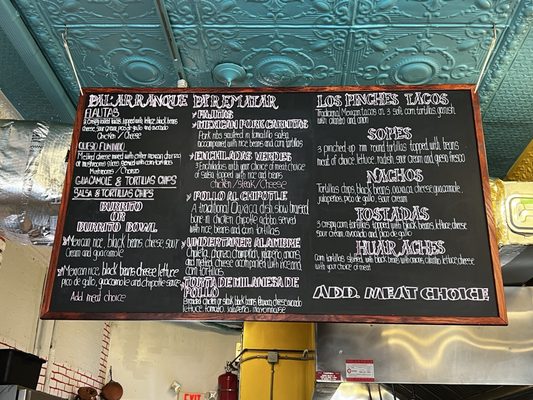 PAL'ARRANQUE
FLAUTAS
sour cream, pico de gallo and avocado
Chicken / Cheese
QUESO FUNDIDO
Mushrooms / Chorizo
GUACAMOLE & TORTILLAS CHIPS
SALSA & TORTILLAS CHIPS
BURRITO
OR
BURRITO BOWL
Mexican rice, black beans, cheese, sour
cream and guacamole
Mexican rice, black beans, cheese, lettuce
pico de gallo, guacamole, and chipotle sauce
Add meat choice
P'REMATAR
FAJITAS
MEXICAN PORK CARNITAS
Pork ribs sauteed in tomatillo salsa
accompanied with rice, beans and corn tortillas
ENCHILADAS VERDES
3 enchiladas with your meat choice
of salsa topped with rice and beans
chicken/steak/cheese
POLLO AL CHIPOTLE
A traditional Oaxaca dish, slow braised
bone in chicken, chipotle adobo, served
with rice, beans and corn tortillas
ALAMBRE
Chuleta, chorizo, champiñon, jalapeño, onions
and melted cheese accompanied with rice and
corn tortillas
TORTA DE MILANESA DE
POLLO
lettuce, tomato, jalapeño, mayonnaise
LOS PINCHES TACOS
Traditional Mexican tacos on 3 soft corn tortillas, garnish
with cilantro and onion
SOPES
3 pinched cup mini round tortillas topped with beans
meat of choice, lettuce, radish, sour cream and queso fresco
NACHOS
Tortillas chips, black beans, oaxaca cheese, guacamole,
jalapeños, pico de gallo, sour cream.
TOSTADAS
3 crispy corn tortillas topped with black beans, lettuce, cheese
sour cream, avocado, and pico de gallo
HUARACHES
Corn tortillas topped with black beans, onion, cilantro, lettuce, cheese
with your choice of meat
ADD. MEAT CHOICE
EXIT